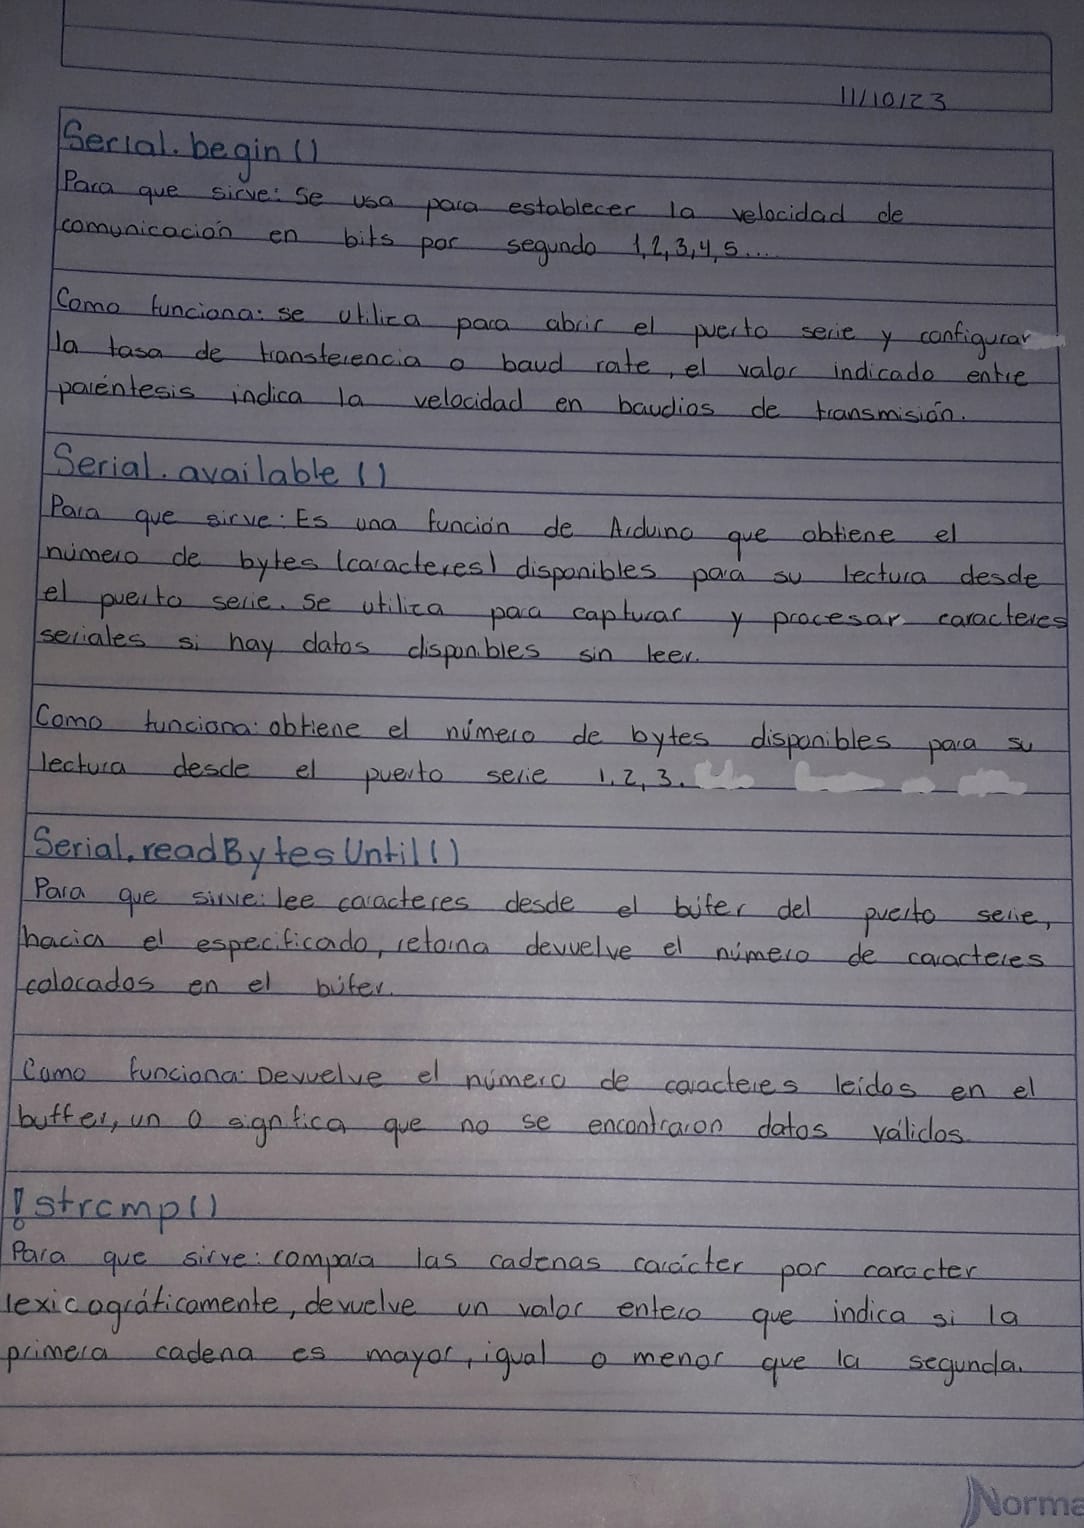 11/10/23
Serial.begin()
Para que sirve: Se usa para establecer la velocidad de
comunicación en bits por segundo 1,2,3,4,5....
Como funciona: se utilica para abrir el puerto serie y configurar
la tasa de transferencia o baud rate, el valor indicado entre
paréntesis indica la velocidad en baudios de transmisión.
Serial.available()
Para que sirve: Es una función de Arduino que obtiene el
número de bytes (caracteres) disponibles para su lectura desde
el puerto serie. Se utilica para capturar y procesar caracteres
seriales si hay datos disponibles sin leer.
Como funciona: obtiene el número de bytes disponibles para su
lectura desde el puerto serie 1,2,3.
Serial.readBytesUntil()
Para que sirve: lee caracteres desde el búfer del puerto serie,
hacia el especificado, retorna devuelve el número de caracteres
colocados en el búfer.
Como funciona: Devuelve el número de caracteres leídos en el
buffer, un 0 signfica que no se encontraron datos válidos
!strcmp()
Para que sirve: compara las cadenas carácter por caracter
lexicográficamente, devuelve un valor entero que indica si la
primera cadena es mayor, igual o menor que la segunda.
Norma